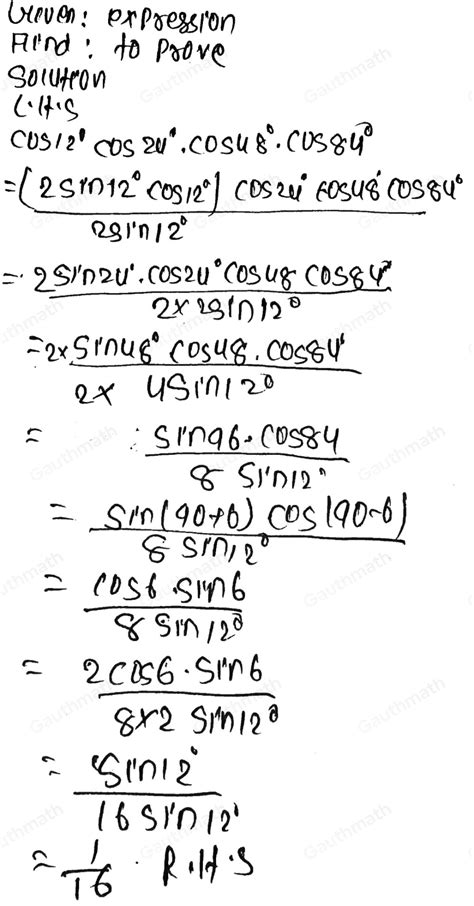 Given: expression
Find: to prove
Solution
L.H.S
cos12° cos24°.cos48°.cos84°
=(2sin12° cos12°) cos24° cos48° cos84°
2sin12°
= 2sin24°.cos24° cos48 cos84°
2×2sin12°
=2×sin48° cos48.cos84°
2× 4sin12°
= : sin96.cos84
8 sin12°
= sin(90+6) cos(90-6)
8 sin12°
= cos6.sin6
8 sin12°
= 2cos6.sin6
8×2 sin12°
= sin12°
16 sin12°
= 1
16 . R.H.S
Gauthmath